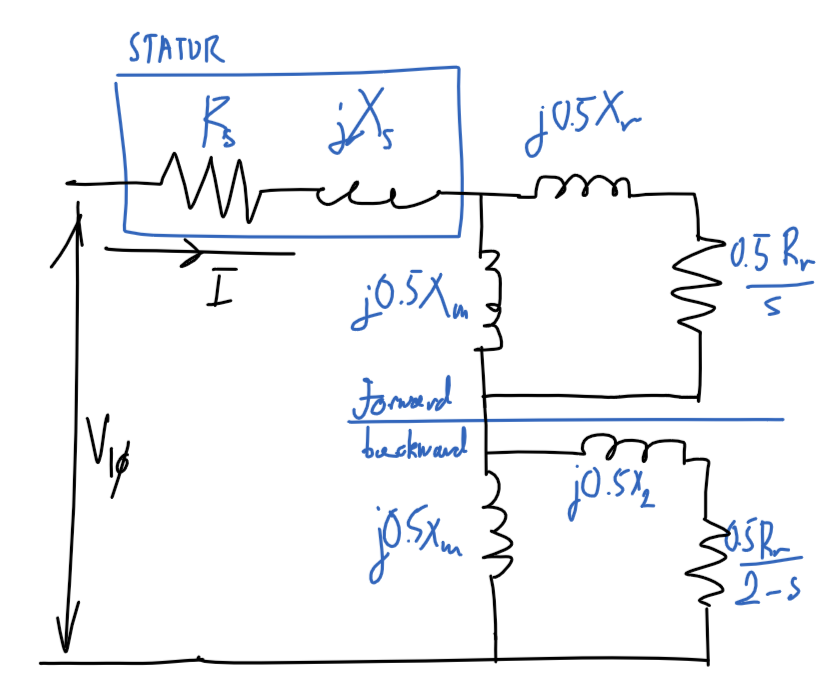 STATOR
R_s
jX_s
j0.5X_r
I
j0.5X_m
0.5 R_r
s
V_1ϕ
Forward
backward
j0.5X_2
j0.5X_m
0.5R_r
2-s